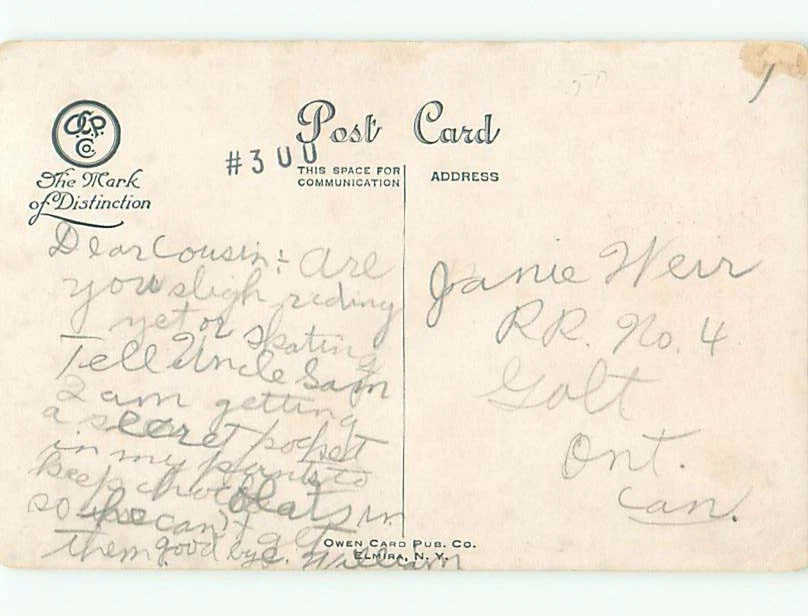 O.C.P.
Co.
The Mark
of Distinction
#300
Post Card
THIS SPACE FOR
COMMUNICATION
ADDRESS
Dear Cousin: Are
you sleigh reding
yet or skating
Tell Uncle Sam
I am getting
a secret pocket
in my pants to
keep chocolats in
so he can't get
them. good bye. William
Janie Weir
R.R. No. 4
Galt
Ont.
Can.
OWEN CARD PUB. CO.
ELMIRA, N. Y.